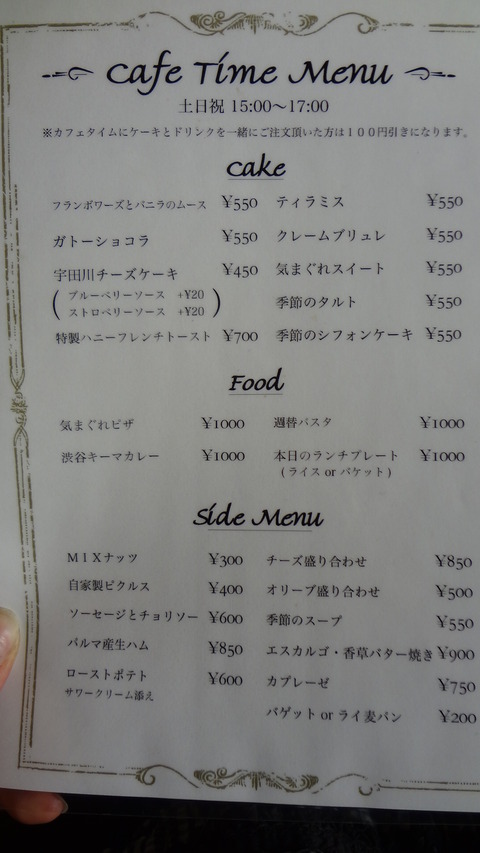 Cafe Time Menu
土日祝 15:00〜17:00
※カフェタイムにケーキとドリンクを一緒にご注文頂いた方は１００円引きになります。
Cake
フランボワーズとバニラのムース ¥550
ガトーショコラ ¥550
宇田川チーズケーキ ¥450
( ブルーベリーソース +¥20
ストロベリーソース +¥20 )
特製ハニーフレンチトースト ¥700
ティラミス ¥550
クレームブリュレ ¥550
気まぐれスイート ¥550
季節のタルト ¥550
季節のシフォンケーキ ¥550
Food
気まぐれピザ ¥1000
渋谷キーマカレー ¥1000
週替パスタ ¥1000
本日のランチプレート ¥1000
(ライス or バケット)
Side Menu
ＭＩＸナッツ ¥300
自家製ピクルス ¥400
ソーセージとチョリソー ¥600
パルマ産生ハム ¥850
ローストポテト ¥600
サワークリーム添え
チーズ盛り合わせ ¥850
オリーブ盛り合わせ ¥500
季節のスープ ¥550
エスカルゴ・香草バター焼き ¥900
カプレーゼ ¥750
バゲット or ライ麦パン ¥200